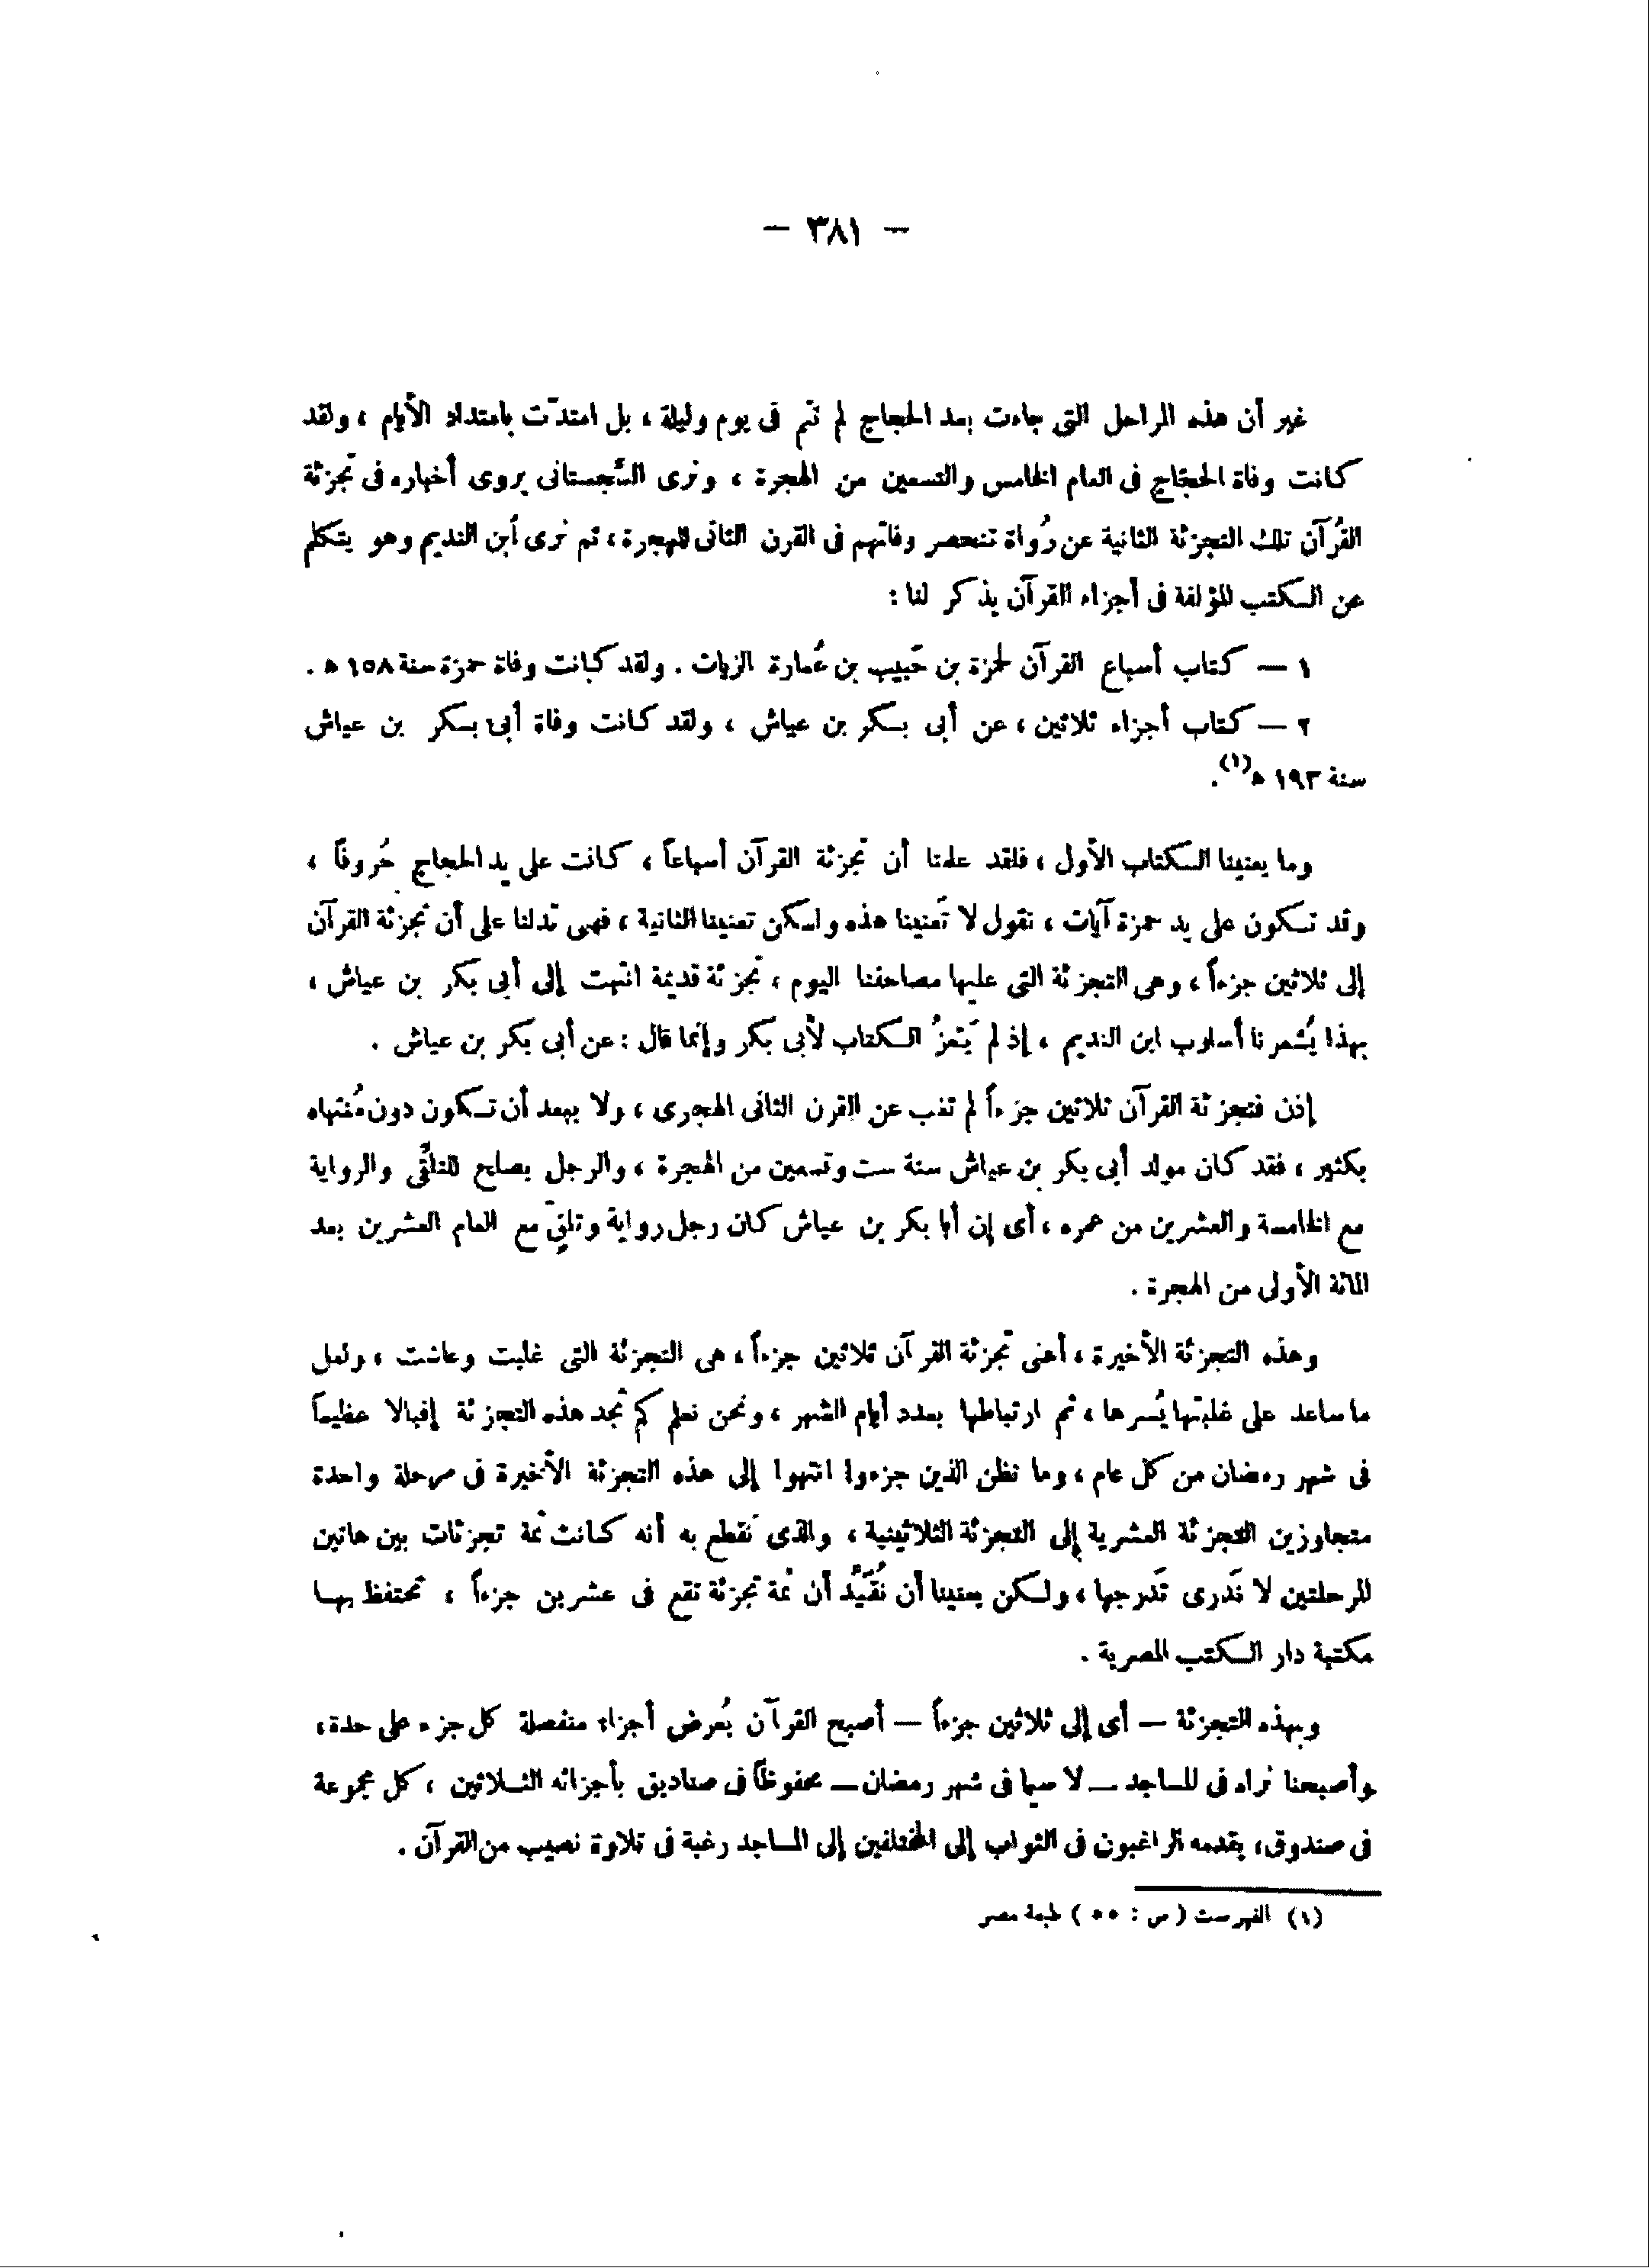 — ٣٨١ —
غير أن هذه المراحل التى جاءت بعد الحجاج لم تتم فى يوم وليلة ، بل امتدّت بامتداد الأيام ، ولقد
كانت وفاة الحجّاج فى العام الخامس والتسعين من الهجرة ، ونرى السِّجستانى يروى أخباره فى تجزئة
القُرآن تلك التجزئة الثانية عن رُواة تنحصر وفاتهم فى القرن الثانى للهجرة ، ثم نرى ابن النديم وهو يتكلم
عن الكتب المؤلفة فى أجزاء القرآن يذكر لنا :
١ — كتاب أسباع القرآن لحمزة بن حَبيب بن عُمارة الزيات . ولقد كانت وفاة حمزة سنة ١٥٨ ه .
٢ — كتاب أجزاء ثلاثين ، عن أبى بكر بن عياش ، ولقد كانت وفاة أبى بكر بن عياش
سنة ١٩٣ ه (١) .
وما يعنينا الكتاب الأول ، فلقد علمنا أن تجزئة القرآن أسباعاً ، كانت على يد الحجاج حُروفاً ،
وقد تكون على يد حمزة آيات ، نقول لا تَعنينا هذه ولكن تعنينا الثانية ، فهى تدلنا على أن تجزئة القرآن
إلى ثلاثين جزءاً ، وهى التجزئة التى عليها مصاحفنا اليوم ، تجزئة قديمة انتهت إلى أبى بكر بن عياش ،
بهذا يُشعرنا أسلوب ابن النديم ، إذ لم يَعْزُ الكتاب لأبى بكر وإنما قال : عن أبى بكر بن عياش .
إذن فتجزئة القرآن ثلاثين جزءاً لم تغب عن القرن الثانى الهجرى ، ولا يبعد أن تكون دون مُنتهاه
بكثير ، فقد كان مولد أبى بكر بن عياش سنة ست وتسعين من الهجرة ، والرجل يصلح للتلقِّى والرواية
مع الخامسة والعشرين من عمره ، أى إن أبا بكر بن عياش كان رجل رواية وتلقٍّ مع العام العشرين بعد
المائة الأولى من الهجرة .
وهذه التجزئة الأخيرة ، أعنى تجزئة القرآن ثلاثين جزءاً ، هى التجزئة التى غلبت وعاشت ، ولعل
ما ساعد على غلبتها يُسرها ، ثم ارتباطها بعدد أيام الشهر ، ونحن نعلم كم تجد هذه التجزئة إقبالا عظيماً
فى شهر رمضان من كل عام ، وما نظن الذين جزءوا انتهوا إلى هذه التجزئة الأخيرة فى مرحلة واحدة
متجاوزين التجزئة العشرية إلى التجزئة الثلاثينية ، والذى نَقطع به أنه كانت ثمة تجزئات بين هاتين
المرحلتين لا نَدرى تَدرجها ، ولكن يعنينا أن نُقَيِّد أن ثمة تجزئة تقع فى عشرين جزءاً ، تحتفظ بها
مكتبة دار الكتب المصرية .
وبهذه التجزئة — أى إلى ثلاثين جزءاً — أصبح القرآن يُعرض أجزاء منفصلة كل جزء على حدة ،
وأصبحنا نراه فى المساجد — لا سيما فى شهر رمضان — محفوظاً فى صناديق بأجزائه الثلاثين ، كل مجموعة
فى صندوق ، يقدمه الراغبون فى الثواب إلى المختلفين إلى المساجد رغبة فى تلاوة نصيب من القرآن .
(١) الفهرست ( ص : ٥٥ ) طبعة مصر